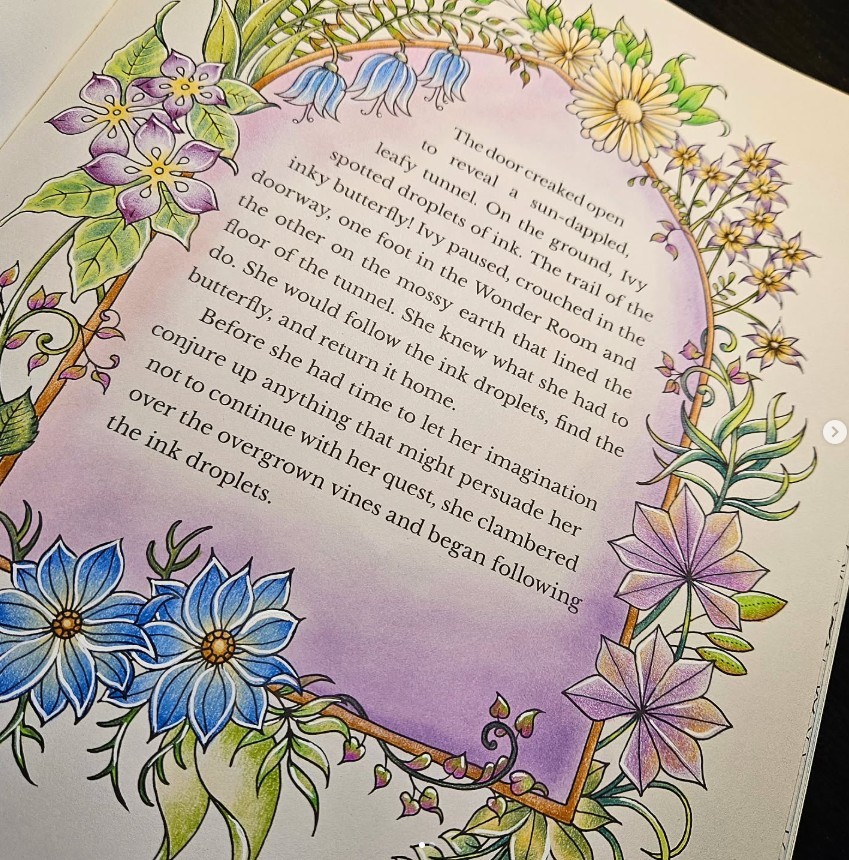 The door creaked open
to reveal a sun-dappled,
leafy tunnel. On the ground, Ivy
spotted droplets of ink. The trail of the
inky butterfly! Ivy paused, crouched in the
doorway, one foot in the Wonder Room and
the other on the mossy earth that lined the
floor of the tunnel. She knew what she had to
do. She would follow the ink droplets, find the
butterfly, and return it home.
Before she had time to let her imagination
conjure up anything that might persuade her
not to continue with her quest, she clambered
over the overgrown vines and began following
the ink droplets.